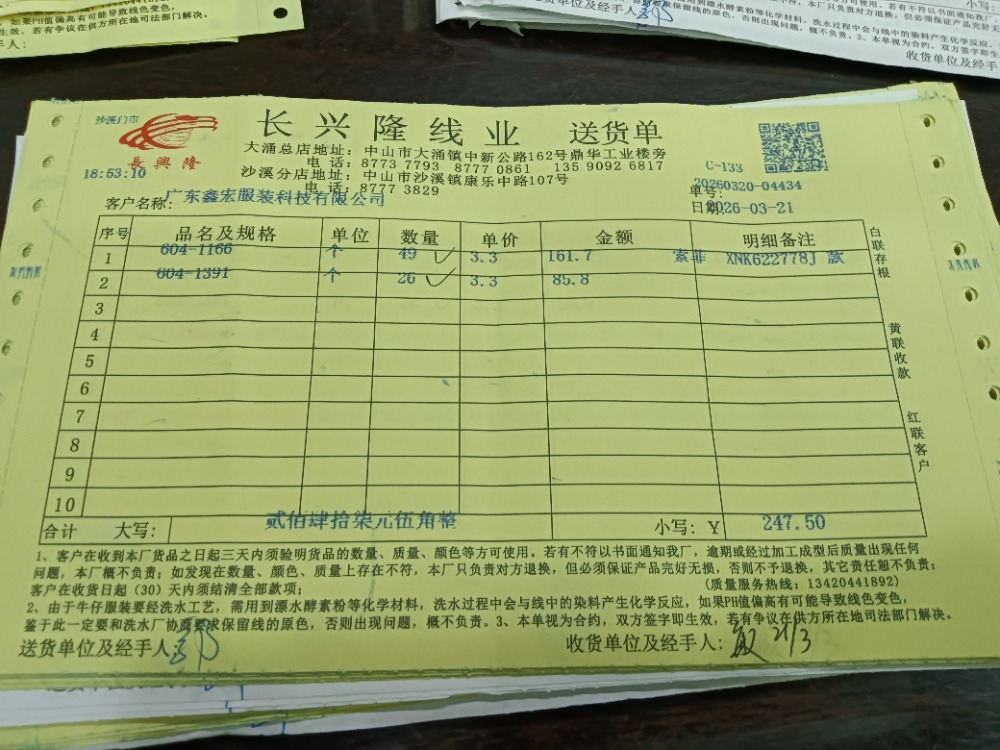 如果PH值偏高有可能导致线色变色，
生效。若有争议在供方所在地司法部门解决。
沙溪门市
長興隆
长兴隆线业 送货单
大涌总店地址：中山市大涌镇中新公路162号鼎华工业楼旁
电话：8773 7793 8777 0861 135 9092 6817
沙溪分店地址：中山市沙溪镇康乐中路107号
电话：8777 3829
18:53:10
C-133
单号：20260320-04434
客户名称：广东鑫宏服装科技有限公司
日期：2026-03-21
序号 品名及规格 单位 数量 单价 金额 明细备注
1 604-1166 个 49 3.3 161.7 索菲 XNK622778J 款
2 604-1391 个 26 3.3 85.8
3
4
5
6
7
8
9
10
合计 大写： 贰佰肆拾柒元伍角整 小写：￥ 247.50
白联存根
黄联收款
红联客户
1、客户在收到本厂货品之日起三天内须验明货品的数量、质量、颜色等方可使用。若有不符以书面通知我厂，逾期或经过加工成型后质量出现任何
问题，本厂概不负责；如发现在数量、颜色、质量上存在不符，本厂只负责对方退换，但必须保证产品完好无损，否则不予退换，其它责任恕不负责；
客户在收货日起（30）天内须结清全部款项； （质量服务热线：13420441892）
2、由于牛仔服装要经洗水工艺，需用到漂水酵素粉等化学材料，洗水过程中会与线中的染料产生化学反应，如果PH值偏高有可能导致线色变色，
鉴于此一定要和洗水厂协商要求保留线的原色，否则出现问题，概不负责。3、本单视为合约，双方签字即生效，若有争议在供方所在地司法部门解决。
送货单位及经手人： 收货单位及经手人： 21/3